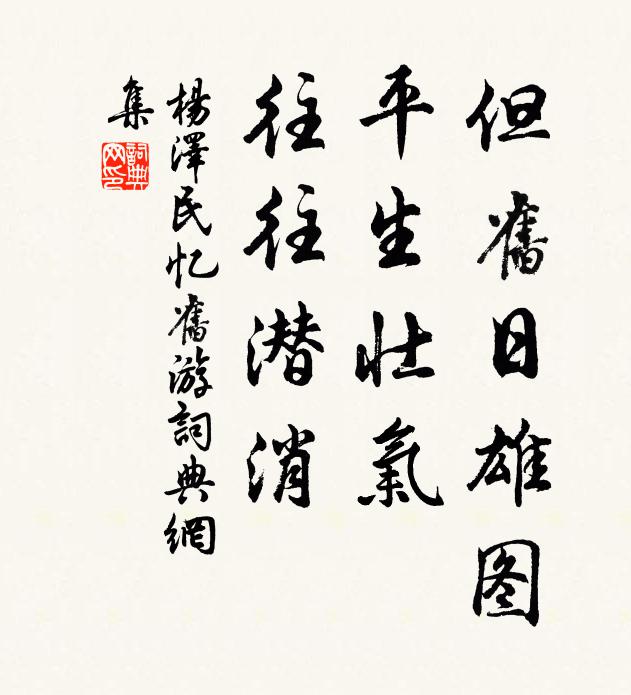 但舊日雄图
平生壮氣
往往潜消
楊澤民忆舊游詞典網
集
詞典網印